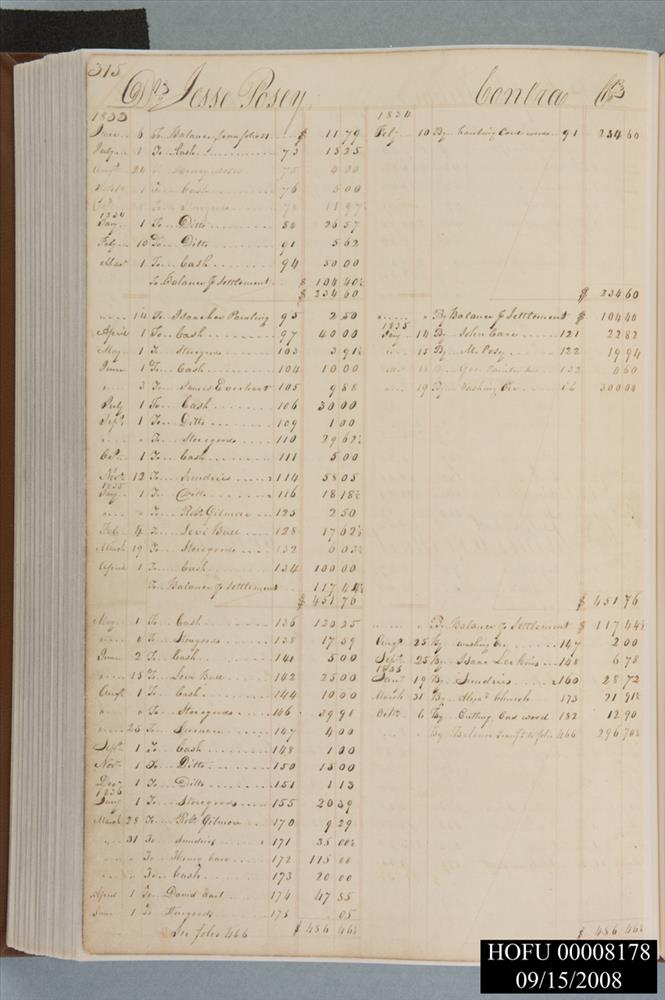 315
Drs Jesse Posey
Contra Crs
1833
June 6 To Balance from folio $ 11 79
July 1 To Cash 73 15 25
Augt 24 To 75 4 00
1 To Cash 76 5 00
1834
Jany 1 To Ditto 84 26 57
Feby 10 To Ditto 91 5 62
Mar 1 To Cash 94 50 00
To Balance of Settlement $ 104 40½
$ 234 60
" 14 To Isaachar Pawling 95 2 50
April 1 To Cash 97 40 00
May 1 To Storegoods 103 3 91½
June 1 To Cash 104 10 00
" 3 To James Everhart 105 9 88
July 1 To Cash 106 30 00
Sept 1 To Ditto 109 1 00
" " To Storegoods 110 29 62½
Oct 1 To Cash 111 5 00
Novr 12 To Sundries 114 58 05
1835
Jany 1 To Ditto 116 18 18½
" " To Robt Gilmore 125 2 50
Feb 4 To Levi Bull 128 17 02½
March 19 To Storegoods 132 6 03½
April 1 To Cash 134 100 00
To Balance of Settlement 117 44½
$ 451 76
May 1 To Cash 136 120 25
" " To Storegoods 138 17 59
June 2 To Cash 141 5 00
" 15 To Levi Bull 142 25 00
Augt 1 To Cash 144 10 00
" " To Storegoods 146 39 91
" 25 To Furnace 147 4 00
Sept 1 To Cash 148 1 00
Novr 1 To Ditto 150 15 00
Decr 1 To Ditto 151 1 13
1836
Jany 1 To Storegoods 155 20 39
March 28 To Robt Gilmore 170 9 29
" 31 To Sundries 171 35 00½
" " To Henry Care 172 115 00
" " To Cash 173 20 00
April 1 To David Hart 174 47 85
June 1 To Storegoods 178 05
In folio 466 $ 486 46½
1834
Feby 10 By hauling Cord wood 91 234 60
$ 234 60
" " By Balance of Settlement $ 104 40
1835
Jany 14 By John Care 121 22 82
" 15 By M. Posey 122 19 94
132 4 60
" 19 By Washing Ore 300 00
$ 451 76
" " By Balance of Settlement $ 117 44½
Augt 25 By washing Ore 147 2 00
Sept 25 By Isaac Lewis 148 6 78
1836
Jany 19 By Sundries 160 28 72
March 31 By Alexr Church 173 21 91½
Octr 6 By Cutting Cord wood 182 12 90
" " By Balance transfd to folio 466 296 70½
$ 486 46½
HOFU 00008178
09/15/2008